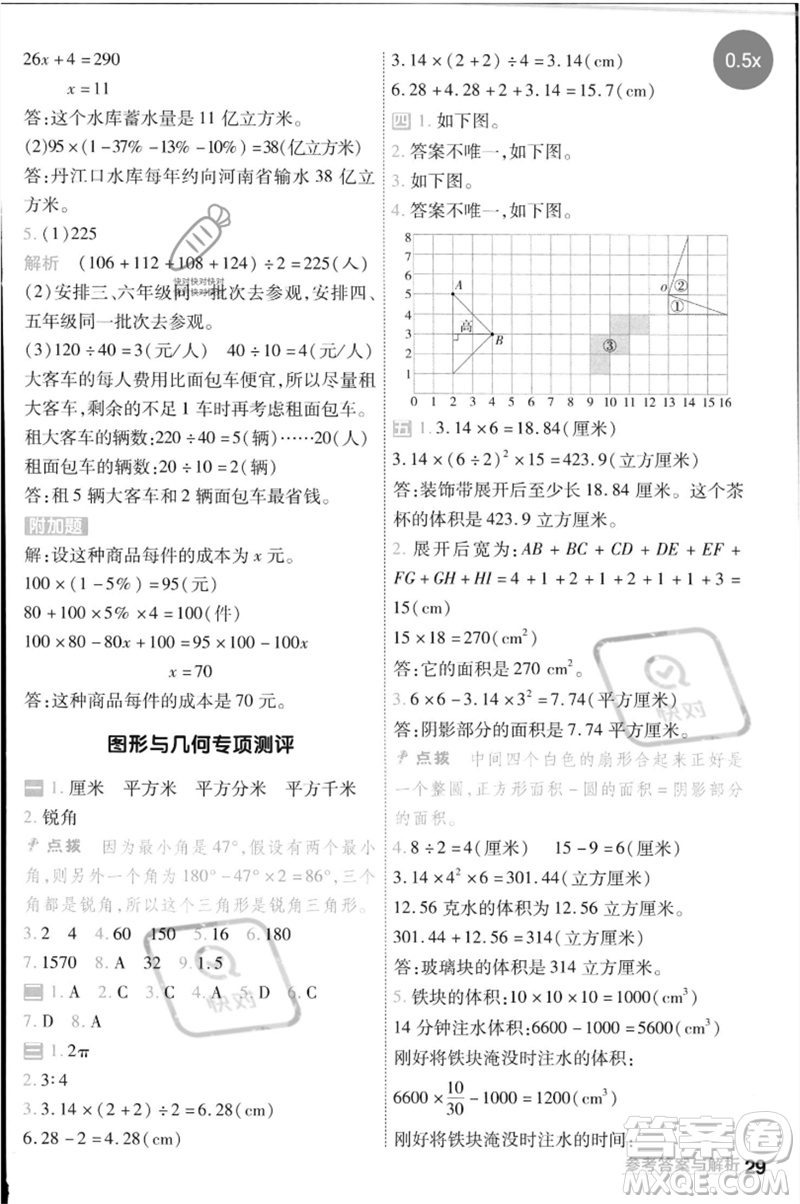 26x+4=290
x=11
答:这个水库蓄水量是 11 亿立方米。
(2)95×(1-37%-13%-10%)=38(亿立方米)
答:丹江口水库每年约向河南省输水 38 亿立
方米。
5. (1)225
解析 (106+112+108+124)÷2=225(人)
(2)安排三、六年级同一批次去参观,安排四、
五年级同一批次去参观。
(3)120÷40=3(元/人) 40÷10=4(元/人)
大客车的每人费用比面包车便宜,所以尽量租
大客车,剩余的不足 1 车时再考虑租面包车。
租大客车的辆数:220÷40=5(辆)……20(人)
租面包车的辆数:20÷10=2(辆)
答:租 5 辆大客车和 2 辆面包车最省钱。
附加题
解:设这种商品每件的成本为 x 元。
100×(1-5%)=95(元)
80+100×5%×4=100(件)
100×80-80x+100=95×100-100x
x=70
答:这种商品每件的成本是 70 元。
图形与几何专项测评
一 1. 厘米 平方米 平方分米 平方千米
2. 锐角
点拨 因为最小角是 47°,假设有两个最小
角,则另一个角为 180°-47°×2=86°,三
个角都是锐角,所以这个三角形是锐角三角形。
3. 2 4 4. 60 150 5. 16 6. 180
7. 1570 8. A 32 9. 1.5
二 1. A 2. C 3. C 4. A 5. C 6. A
7. D 8. A
三 1. 2π
2. 3:4
3. 3.14×(2+2)÷2=6.28(cm)
6.28-2=4.28(cm)
3.14×(2+2)÷4=3.14(cm)
6.28+4.28+2+3.14=15.7(cm)
0.5x
四 1. 如下图。
2. 答案不唯一,如下图。
3. 如下图。
4. 答案不唯一,如下图。
8
7
6
5
4
3
2
1
A
高
B
O
②
①
③
0 1 2 3 4 5 6 7 8 9 10 11 12 13 14 15 16
五 1. 3.14×6=18.84(厘米)
3.14×(6÷2)²×15=423.9(立方厘米)
答:装饰带展开后至少长 18.84 厘米。这个茶
杯的体积是 423.9 立方厘米。
2. 展开后宽为:AB+BC+CD+DE+EF+
FG+GH+HI=4+1+2+1+2+1+4=
15(cm)
15×18=270(cm²)
答:它的面积是 270 cm²。
3. 6×6-3.14×3²=7.74(平方厘米)
答:阴影部分的面积是 7.74 平方厘米。
点拨 中间四个白色的扇形合起来正好是
一个整圆,正方形面积-圆的面积=阴影部分
的面积。
4. 8÷2=4(厘米) 15-9=6(厘米)
3.14×4²×6=301.44(立方厘米)
12.56 克水的体积为 12.56 立方厘米。
301.44+12.56=314(立方厘米)
答:玻璃块的体积是 314 立方厘米。
5. 铁块的体积:10×10×10=1000(cm³)
14 分钟注水体积:6600-1000=5600(cm³)
刚好将铁块淹没时注水的体积:
6600×10/30-1000=1200(cm³)
刚好将铁块淹没时注水的时间:
参考答案与解析 29
快对
快对
答案圈
MXQE.COM